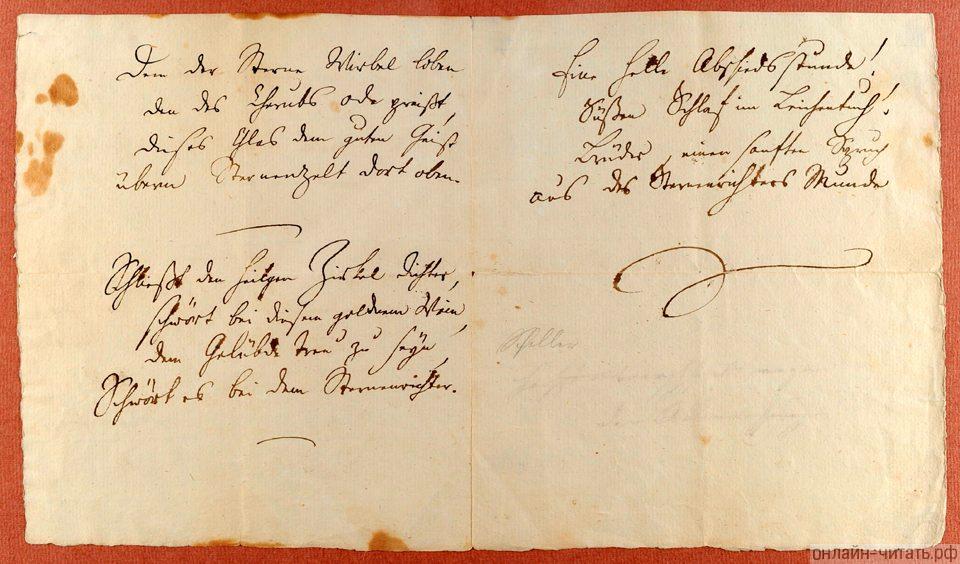 Dem der Sterne Wirbel loben
den des Cherubs ode preißt,
dieses Glas dem guten Geist
überm Sternenzelt dort oben.
Schließt den heilgen Zirkel dichter,
schwört bei diesem goldnem Wein,
dem Gelübde treu zu seyn,
Schwört es bei dem Sternenrichter.
Eine helle Abschiedsstunde!
Süßen Schlaf im Leichentuch!
Brüder, einen sanften Spruch
aus des Sternenrichters Munde
Schiller
онлайн-читать.рф